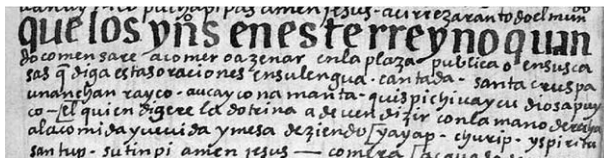 pas amen jesus - aci rrezaran todo el mun
que los yñs en este rreyno quan
do comensare a comer o a zenar en la plaza publica o en su sca
sas q̃ diga estas oraciones en su lengua - cantada - santa cruspa
unanchan rayco - aucaycona manta - quispichiuaycu dios apuy
co - el quien digere la dotrina a de uendizir con la mano derecha
a la comida y ueuida y mesa deziendo yayap - churip - yspiritu
santup - sutinpi amen jesus - comera